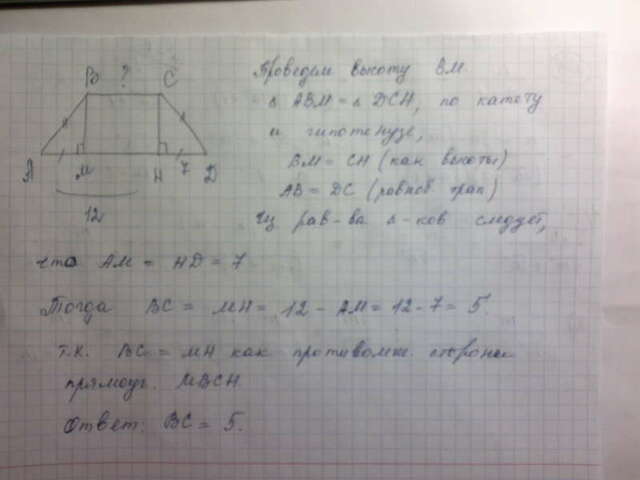 B ? C
A M H 7 D
12
Проведем высоту BM.
△ ABM = △ DCH, по катету
и гипотенузе,
BM = CH (как высоты)
AB = DC (равноб трап)
Из рав-ва △-ков следует,
что AM = HD = 7
Тогда BC = MH = 12 - AM = 12 - 7 = 5.
т.к. BC = MH как противопол. стороны
прямоуг. MBCH.
Ответ: BC = 5.